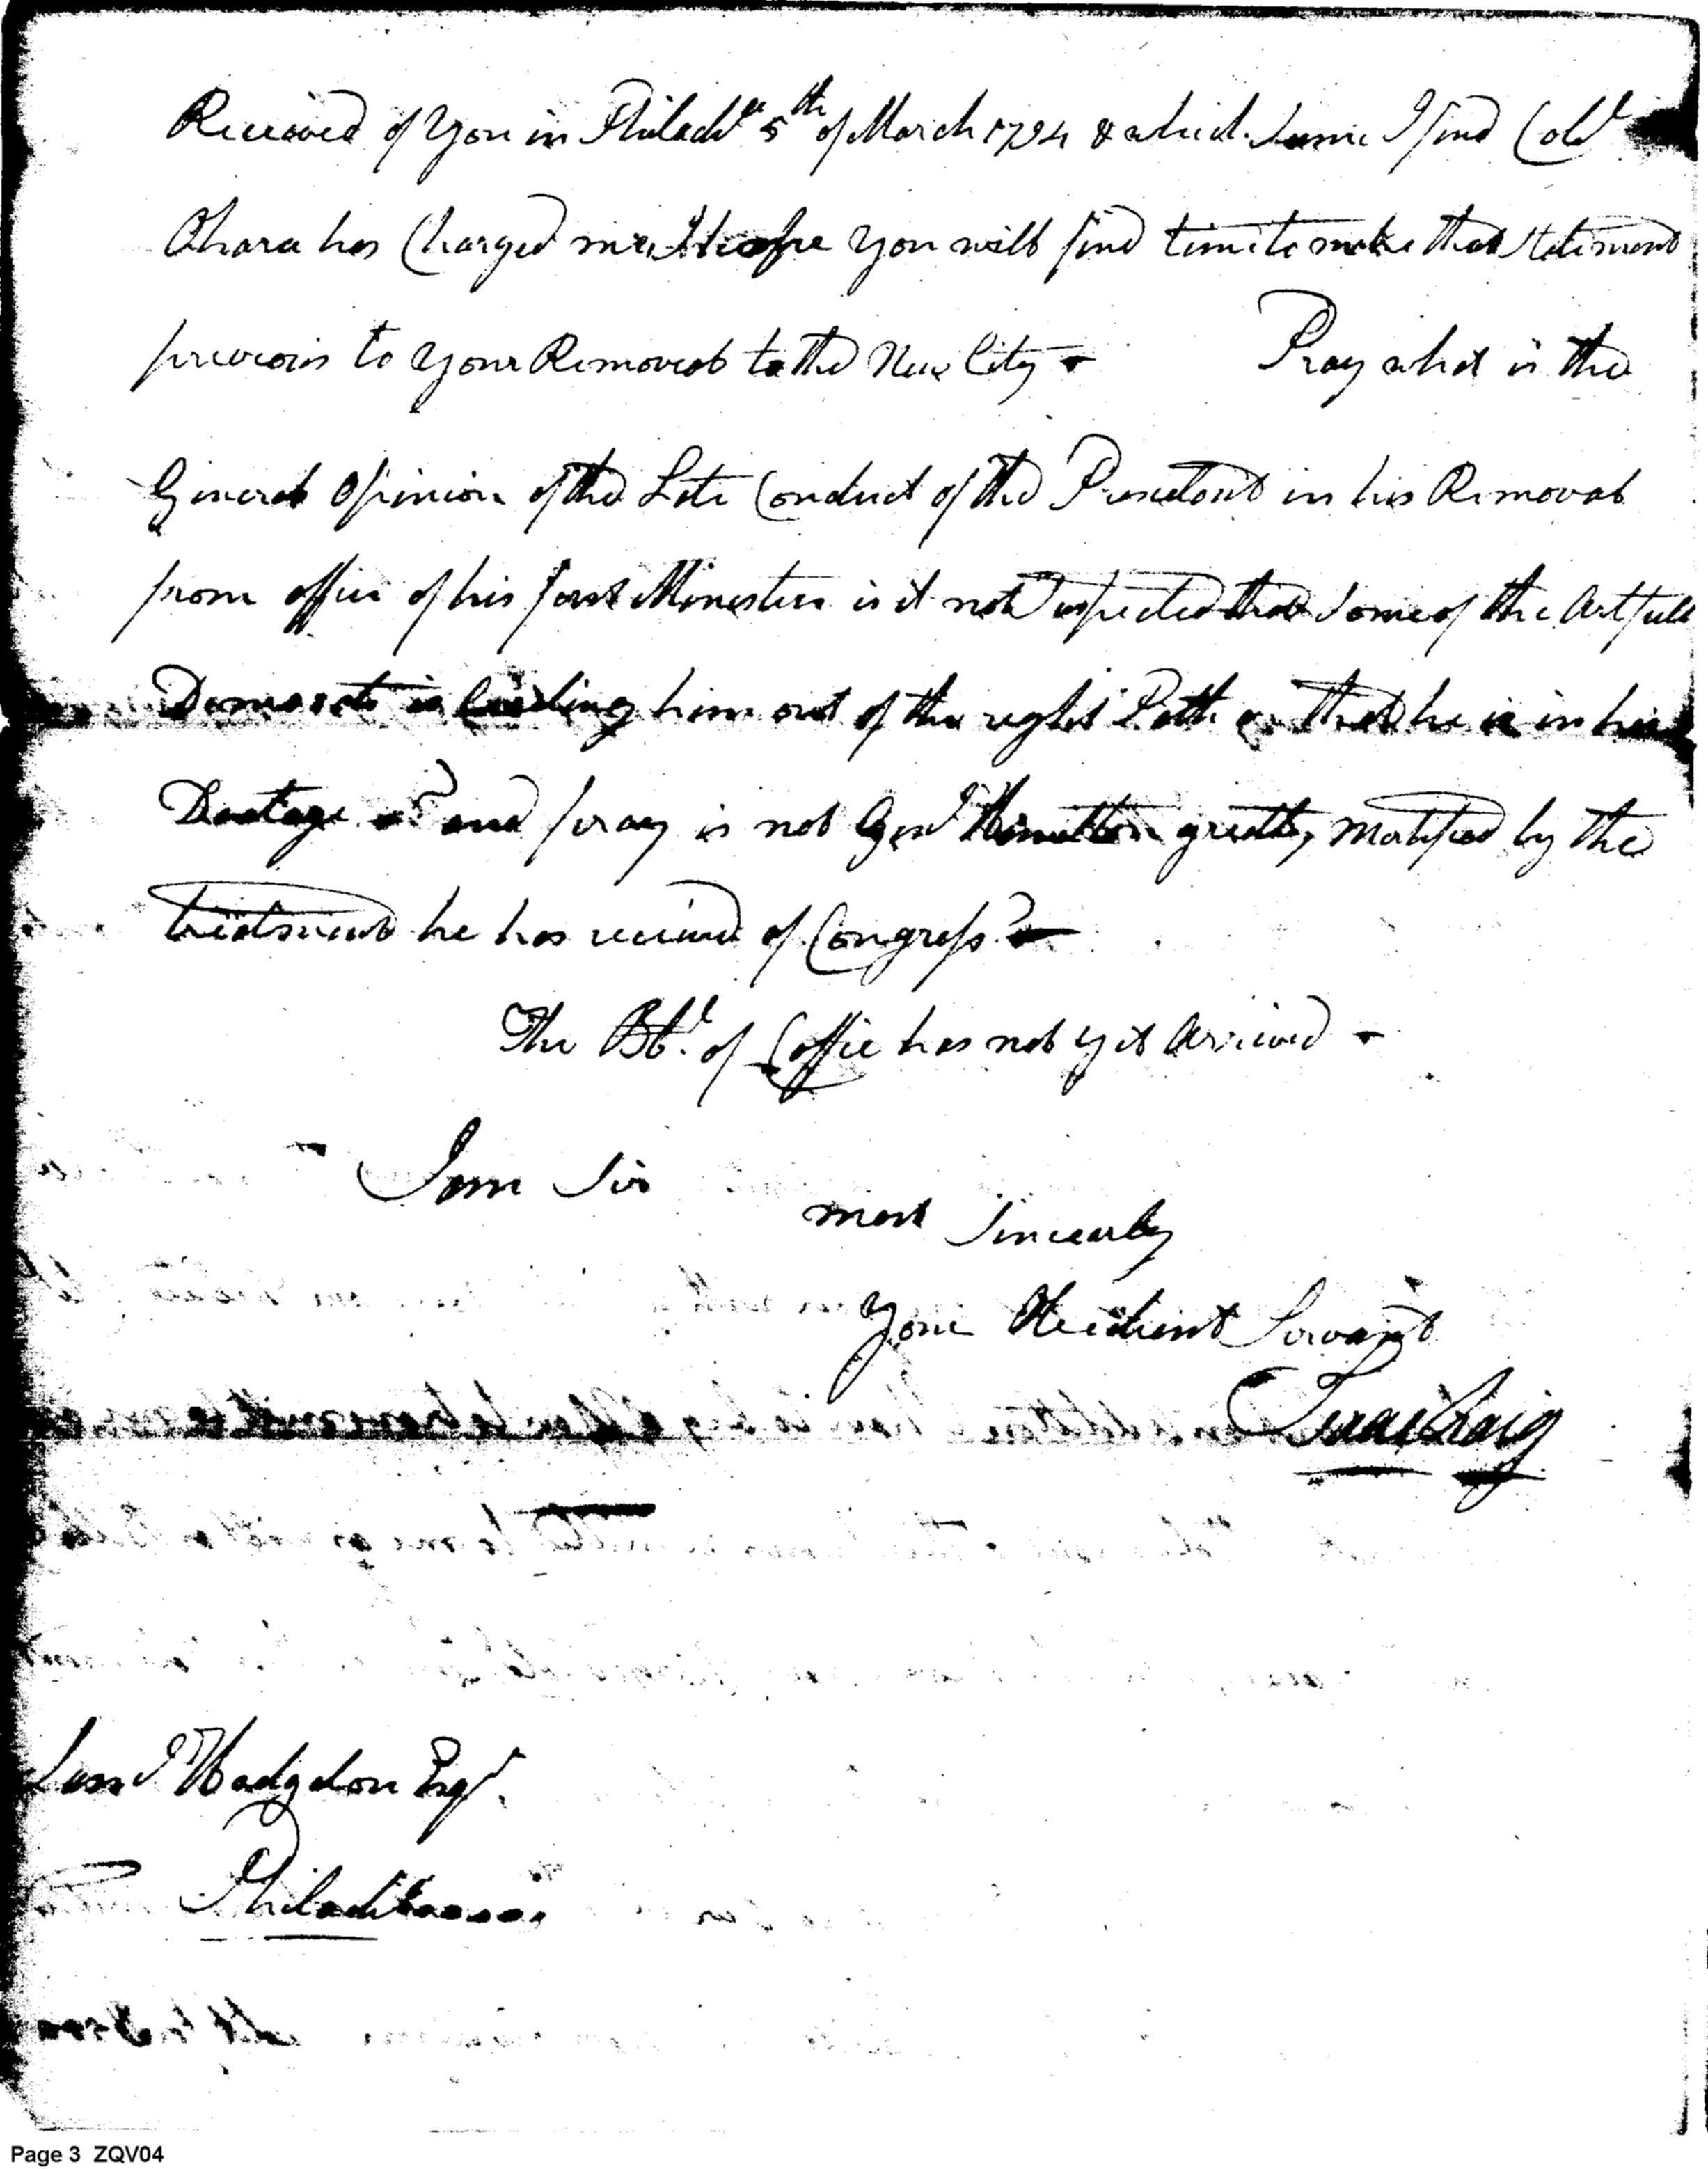 Received of you in Philada 5th of March 1794 & which sume I find Colo
Ohara has Charged me, I hope you will find time to make that Statement
previous to your Removal to the New City - Pray what is the
General Opinion of the Late Conduct of the President in his Removal
from office of his Minesters is it not that some of the Artfull
Democrats is leading him out of the right Path or that he is in his
Doatage and pray is not Genl Hamilton greatly Mortified by the
treatment he has received of Congress? -
The Bbl. of Coffie has not yet Arrived -
I am Sir
most Sincearly
Your Obedient Servant
Isaac Craig
Saml Hodgdon Esqr.
Philadelphia
Page 3 ZQV04